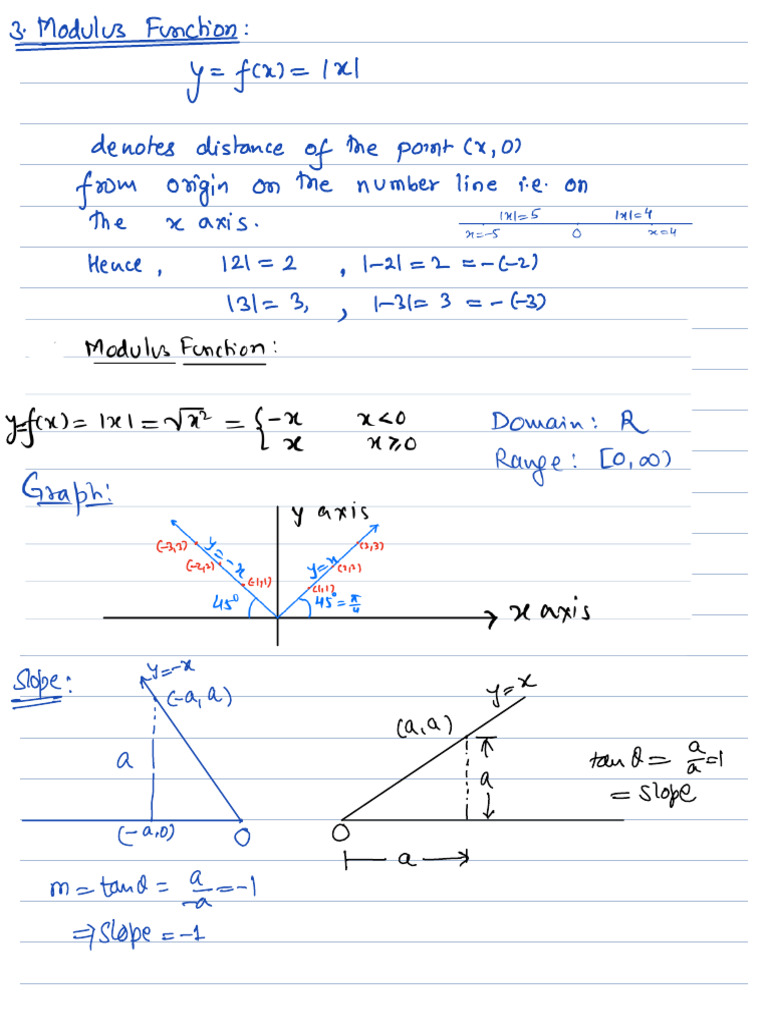 3. Modulus Function:
y = f(x) = |x|
denotes distance of the point (x, 0)
from origin on the number line i.e. on
the x axis.
|x|=5 |x|=4
x=-5 0 x=4
Hence, |2| = 2 , |-2| = 2 = -(-2)
|3| = 3, , |-3| = 3 = -(-3)
Modulus Function:
y=f(x) = |x| = √x² = { -x x<0
x x≥0
Domain: R
Range: [0, ∞)
Graph:
y axis
(-3,3) y=-x y=x (3,3)
(-2,2) (2,2)
(-1,1) (1,1)
45° 45° = π/4
x axis
Slope:
y=-x
(-a, a)
a
(-a,0) O
m = tanθ = a/-a = -1
⇒ slope = -1
y=x
(a,a)
a
O
a
tanθ = a/a = 1
= slope